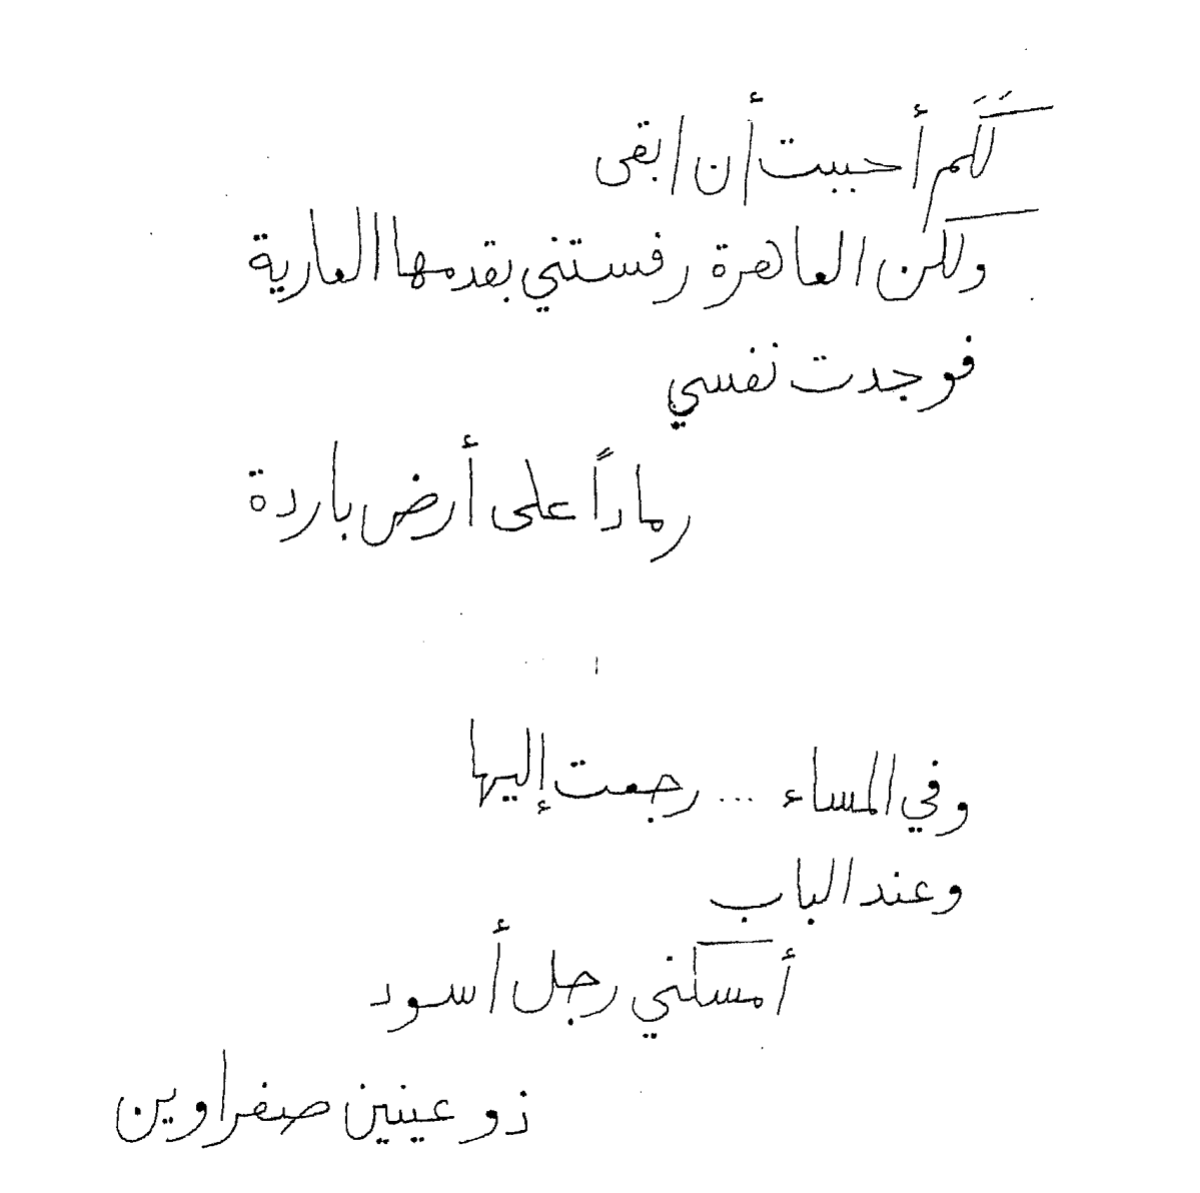 لَكَم أحببت أن ابقى
ولكن العاهرة رفستني بقدمها العارية
فوجدت نفسي
رماداً على أرض باردة
وفي المساء ... رجعت إليها
وعند الباب
أمسكني رجل أسود
ذو عينين صفراوين